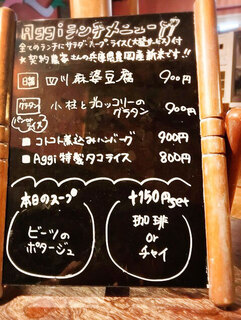 Aggiランチメニュー
全てのランチにサラダ・スープ・ライス(大盛サービス)付
★契約農家さんの兵庫県豊岡産新米です!!
日替 四川麻婆豆腐 900円
グラタン 小柱とブロッコリーのグラタン 900円
パンorライス
■コトコト煮込みハンバーグ 900円
■Aggi特製タコライス 800円
本日のスープ
ビーツの
ポタージュ
+150円set
珈琲
or
チャイ